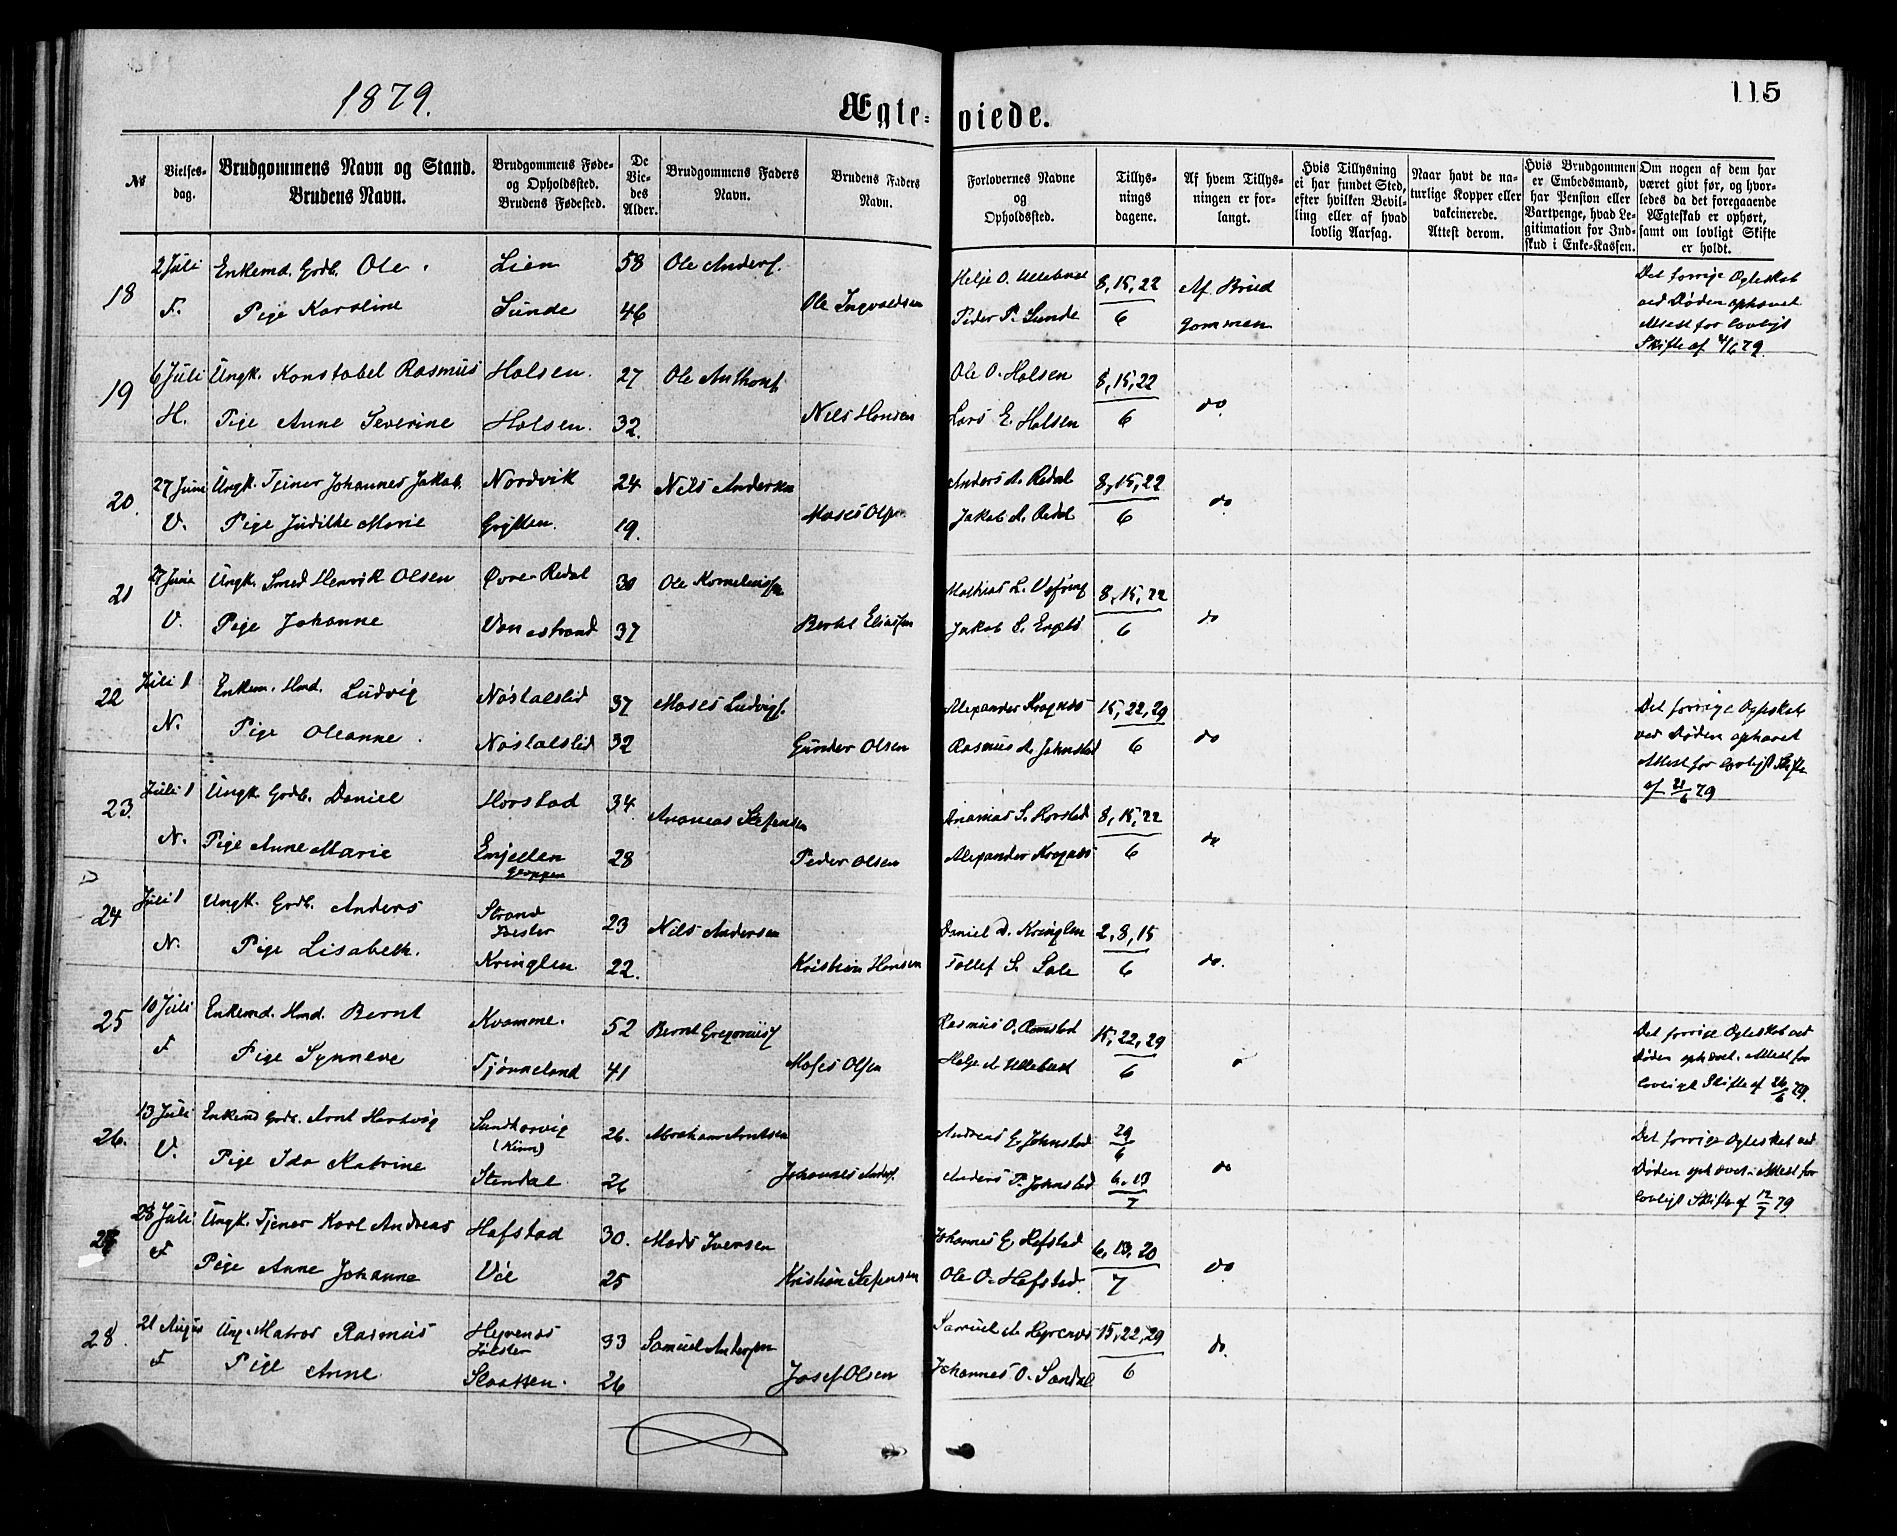 1879.
Ægteviede.
115
№
Vielses-
dag.
Brudgommens Navn og Stand.
Brudens Navn.
Brudgommens Føde-
og Opholdssted.
Brudens Fødested.
De
Vie-
des
Alder.
Brudgommens Faders
Navn.
Brudens Faders
Navn.
Forlovernes Navne
og
Opholdssted.
Tillys-
nings
dagene.
Af hvem Tillys-
ningen er for-
langt.
Hvis Tillysning
ei har fundet Sted,
efter hvilken Bevil-
ling eller af hvad
lovlig Aarsag.
Naar havt de na-
turlige Kopper eller
vakcinerede.
Attest derom.
Hvis Brudgommen
er Embedsmand,
har Pension eller
Vartpenge, hvad Le-
gitimation for Ind-
skud i Enke-Kassen.
Om nogen af dem har
været givt før, og hvor-
ledes da det foregaaende
Ægteskab er ophørt,
samt om lovligt Skifte
er holdt.
18 2 Juli Enkemd. Grdb. Ole. Lien 58 Ole Anders. Helje O. Ullebust 8,15,22 Af Brud Det forrige Ægteskab
F. Pige Karoline Sunde 46 Ole Ingvaldsen Peder P. Sunde 6 gommen ved Døden ophævet
Attest for lovligt
Skifte af 79.
19 6 Juli Ungk. Konstabel Rasmus Halsen. 27 Ole Anthons. Ole O. Halsen 8,15,22
H. Pige Anne Severine Halsen. 32. Nils Hansen Lars E. Halsen 6 do.
20. 27 Juni Ungk. Tjener Johannes Jakob. Nordvik 24 Nils Andersen Anders A. Redal 8,15,22
V. Pige Judithe Marie Grytten. 19. Moses Olsen Jakob A. Redal 6 do
21 27 Juni Ungk. Smed Henrik Olsen Øvre Redal 30 Ole Korneliussen Mathias L. Vefring 8,15,22
V. Pige Johanne Vonastrand 37 Bertel Eliassen Jakob S. 6 do
22 Juli 1 Enkem. Hmd. Ludvig Nøstalslid 37 Moses Ludvigs. Alexander Kragnæs 15,22,29 Det forrige Ægteskab
N. Pige Oleanne. Nøstalslid 32 Gunder Olsen Rasmus A. Johnstad 6 do ved Døden ophævet
Attest for lovligt Skifte
af 21/6 79
23. Juli 1 Ungk. Grdb. Daniel Horstad 34. Ananias Stefensen Ananias S. Horstad 8,15,22
N. Pige Anne Marie Enjellen 28 Peder Olsen Alexander Kragnæs 6 do
Gloppen
24 Juli 1 Ungk. Grdb. Anders Strand 23 Nils Andersen Daniel D. Kringlen 2,8,15
Jølster
N. Pige Lisabeth. Kringlen 22. Kristian Hansen Tollef S. Sole 6 do.
25 10 Juli Enkemd. Hmd. Bernt Kvamme. 52 Bernt Gregorius Rasmus O. Ramstad 15,22,29 Det forrige Ægteskab ved
F Pige Synneve Tjønneland 41 Moses Olsen Helje A. Ullebust 6 Døden ophævet. Attest for
lovligt Skifte af 26/6 79.
26. 13 Juli Enkemd Grdb. Arnt Hartvig Sandkorvig 26. Abraham Arntsen Andreas E. Johnstad 29/6 Det forrige Ægteskab ved
(Kinn)
V. Pige Ida Katrine Stendal 26 Johannes Anders. Anders P. Johnstad 6,13/7 do Døden ophævet. Attest for
lovligt Skifte af 12/7 79
27 23 Juli Ungk. Tjener Karl Andreas Hafstad 30. Mads Iversen Johannes E. Hafstad 6,13,20
F Pige Anne Johanne Vie 25 Kristian Stefensen Ole O. Hafstad. 7 do
28. 21 August Ung. Matros Rasmus Heyrenæs 33 Samuel Andersen Samuel A. Heyrenæs 15,22,29
Jølster
F Pige Anne Slaatten. 26 Josef Olsen Johannes O. Sandal 6 do.